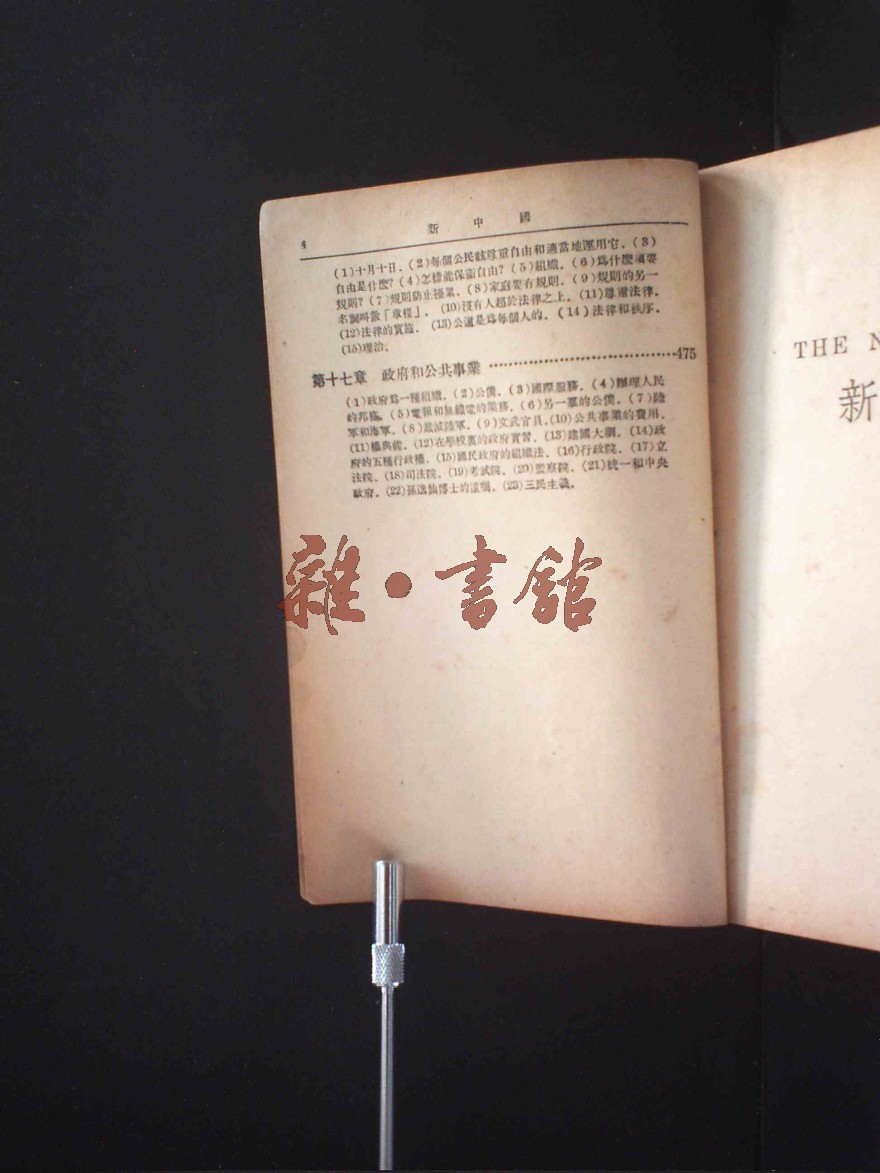 4 新中國
(1)十月十日. (2)每個公民該尊重自由和適當地運用它. (3)
自由是什麼? (4)怎樣能保衛自由? (5)組織. (6)爲什麼須要
規則? (7)規則防止擾累. (8)家庭要有規則. (9)規則的另一
名詞叫做「章程」. (10)沒有人超於法律之上. (11)尊重法律.
(12)法律的實施. (13)公道是爲每個人的. (14)法律和秩序.
(15)理治.
第十七章 政府和公共事業 ……………………475
(1)政府爲一種組織. (2)公僕. (3)國際服務. (4)辦理人民
的郵務. (5)電報和無線電的業務. (6)另一羣的公僕. (7)陸
軍和海軍. (8)裁減陸軍. (9)文武官員. (10)公共事業的費用.
(11)權與能. (12)在學校裏的政府實習. (13)建國大綱. (14)政
府的五種行政權. (15)國民政府的組織法. (16)行政院. (17)立
法院. (18)司法院. (19)考試院. (20)監察院. (21)統一和中央
政府. (22)孫逸仙博士的遺囑. (23)三民主義.
雜•書館
THE N
新